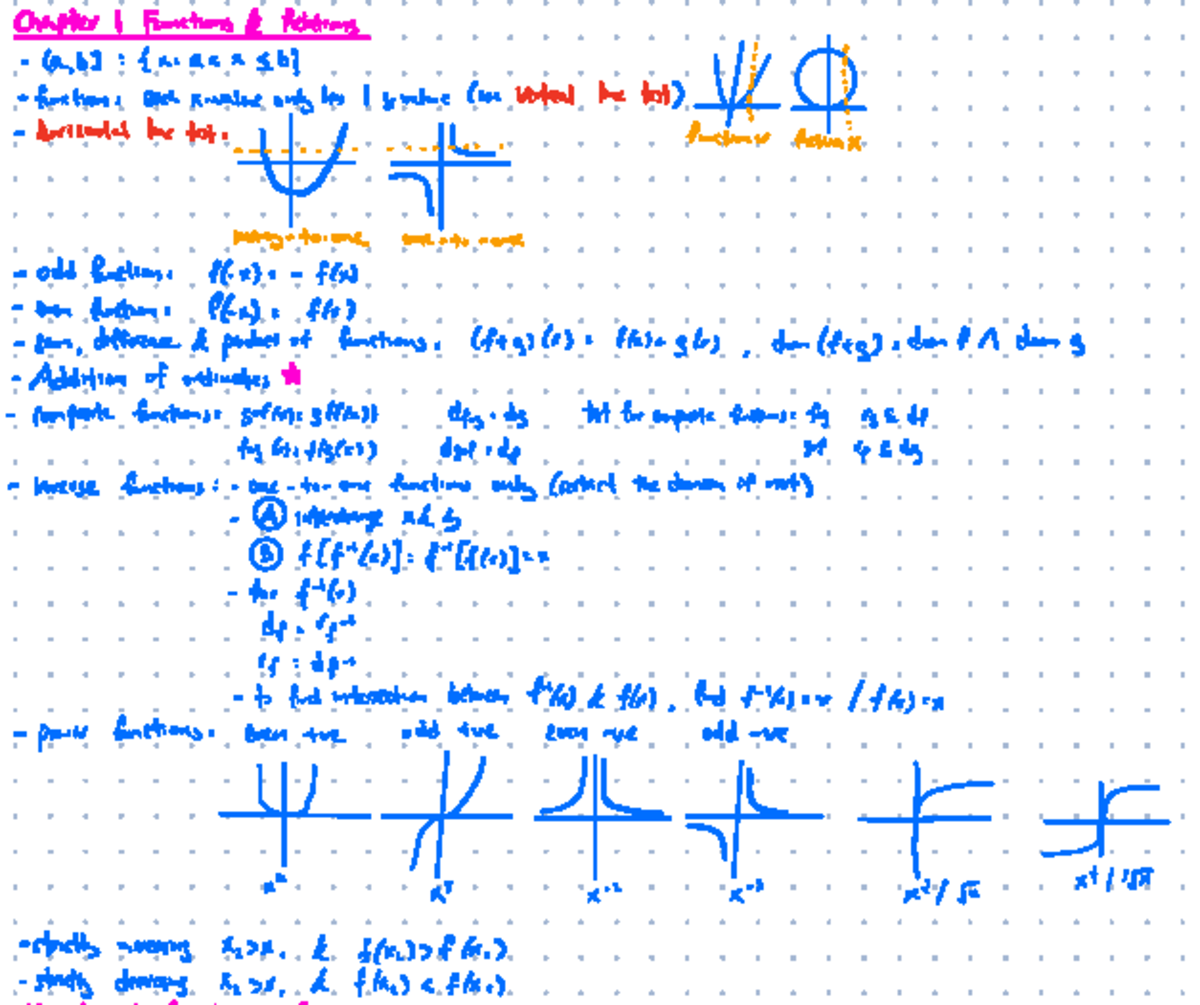 Chapter 1 Functions & Relations
- (a,b] : {x: a < x ≤ b]
- function: each x-value only has 1 y-value (use vertical line test)
function ✓ function X
- horizontal line test:
many-to-one one-to-one
- odd function: f(-x) = - f(x)
- even function: f(-x) = f(x)
- sum, difference & product of functions: (f+g)(x) = f(x)+g(x), dom(f+g) = dom f ∩ dom g
- Addition of ordinates ★
- composite functions: gof(x) = g(f(x)) dfog = dg test for composite functions: fog rg ⊆ df
fog(x) = f(g(x)) dgof = df gof rf ⊆ dg
- inverse functions: - one-to-one functions only (restrict the domain if not)
- Ⓐ interchange x & y
Ⓑ f[f⁻¹(x)] = f⁻¹[f(x)] = x
- for f⁻¹(x)
df = rf⁻¹
rf = df⁻¹
- to find intersection between f⁻¹(x) & f(x), find f⁻¹(x)=x / f(x)=x
- power functions: even +ve odd +ve even -ve odd -ve
x⁻² x⁻³
- strictly increasing x₂>x₁ & f(x₂)>f(x₁)
- strictly decreasing x₂>x₁ & f(x₂)<f(x₁)